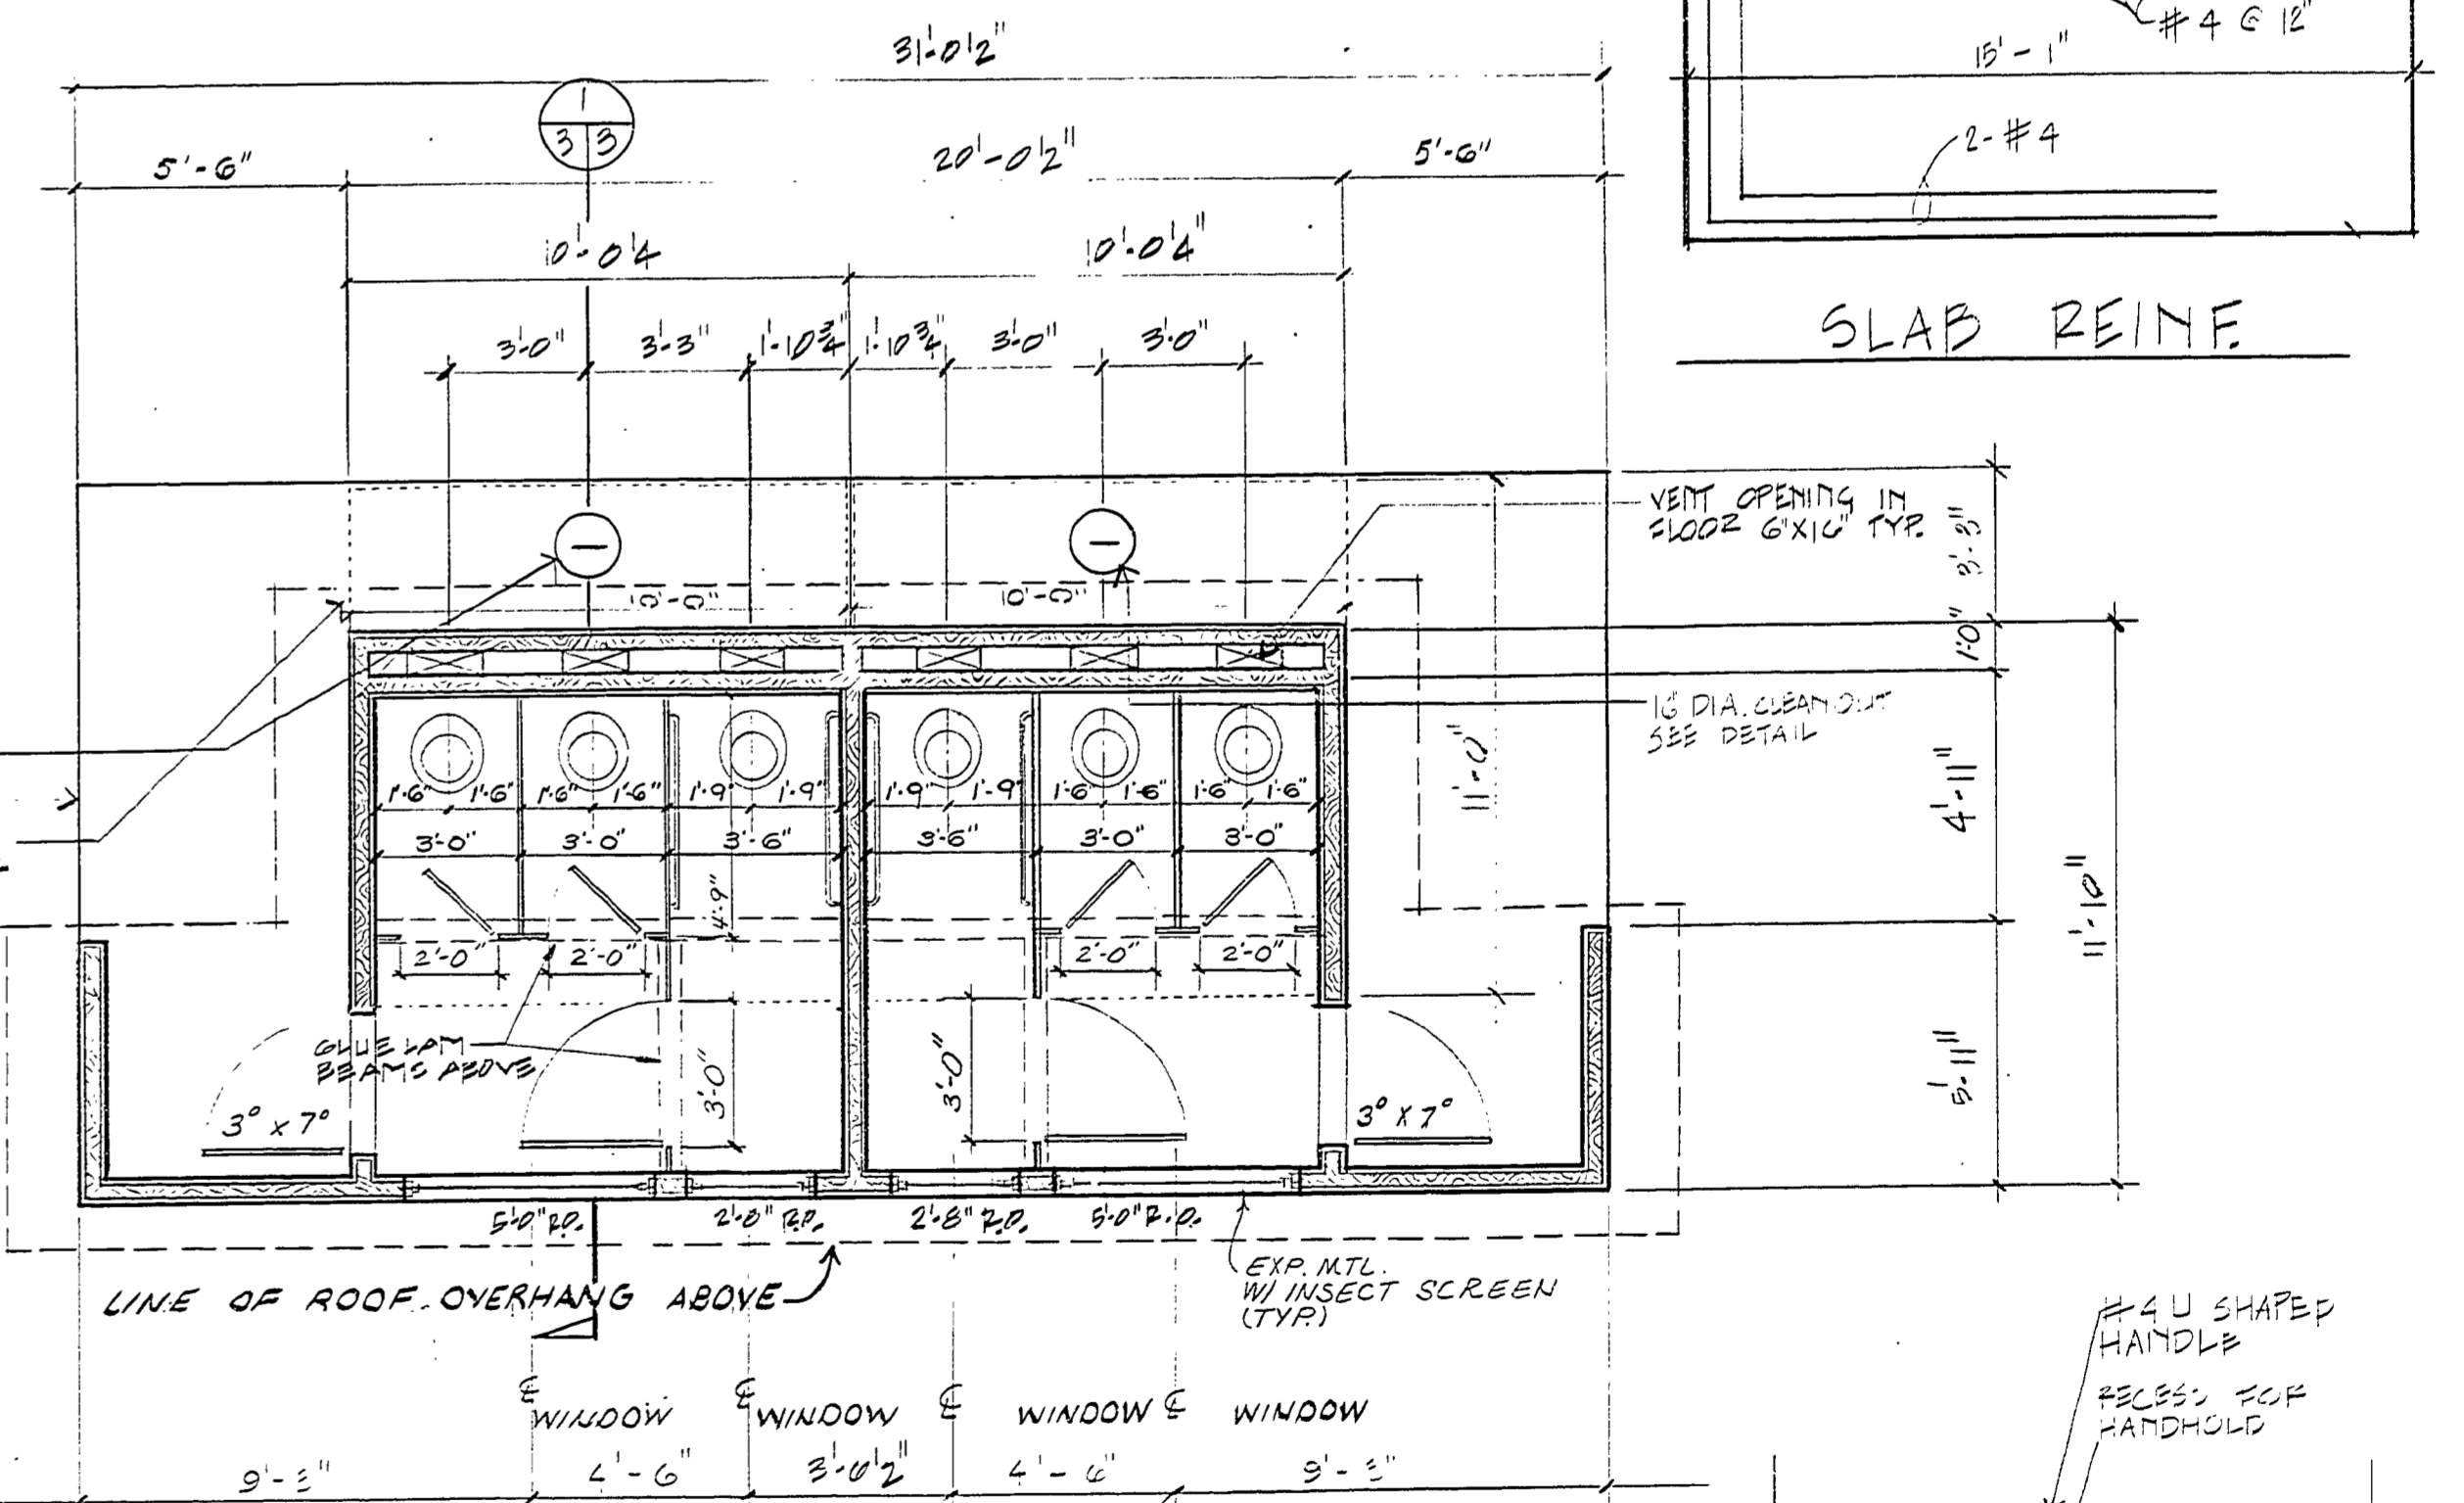 31'-0½"
# 4 @ 12"
15'-1"
1
3 3
2-#4
5'-6"
20'-0½"
5'-6"
10'-0¼
10'-0¼"
3'-0"
3'-3"
1'-10¾"
1'-10¾"
3'-0"
3'-0"
SLAB REINF.
VENT OPENING IN
FLOOR 6"X16" TYP.
3'-3"
10'-0"
10'-0"
1'-0"
16" DIA. CLEANOUT
SEE DETAIL
11'-0"
4'-11"
11'-10"
1'-6" 1'-6" 1'-6" 1'-6" 1'-9" 1'-9" 1'-9" 1'-9" 1'-6" 1'-6" 1'-6" 1'-6"
3'-0" 3'-0" 3'-6" 3'-6" 3'-0" 3'-0"
4'-9"
2'-0" 2'-0" 2'-0" 2'-0"
GLUE LAM
BEAMS ABOVE
3'-0"
3'-0"
5'-11"
3° x 7°
3° X 7°
5'-0" R.O.
2'-8" R.O.
2'-8" R.O.
5'-0" R.O.
LINE OF ROOF OVERHANG ABOVE
EXP. MTL.
W/ INSECT SCREEN
(TYP.)
#4 U SHAPED
HANDLE
RECESS FOR
HANDHOLD
℄ WINDOW
℄ WINDOW
℄ WINDOW
℄ WINDOW
4'-6"
3'-6½"
4'-6"